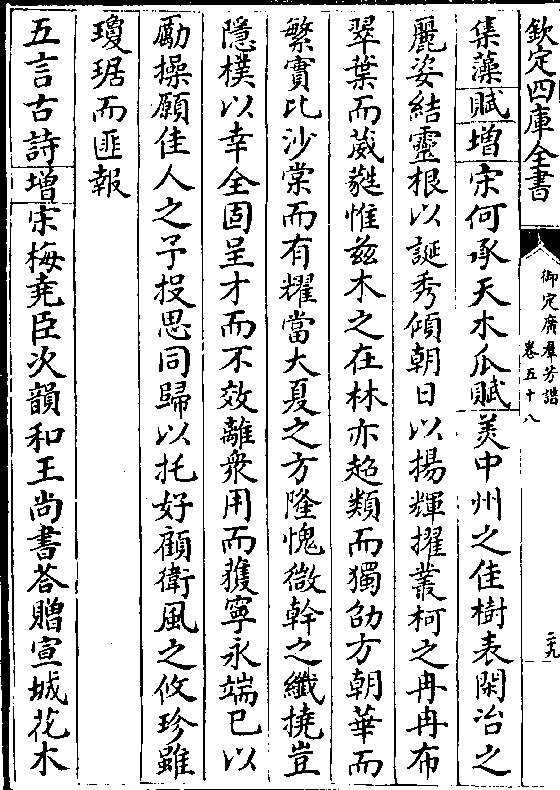 欽定四庫全書
御定廣羣芳譜
卷五十八
二九
集藻賦增宋何承天木瓜賦美中州之佳樹表閑冶之
麗姿結靈根以誕秀傾朝日以揚輝擢叢柯之冉冉布
翠葉而葳蕤惟兹木之在林亦超類而獨劭方朝華而
繁實比沙棠而有耀當大夏之方隆愧微幹之纖撓豈
隱樸以幸全固呈才而不效離衆用而獲寧永端已以
勵操願佳人之予投思同歸以托好顧衛風之攸珍雖
瓊琚而匪報
五言古詩增宋梅堯臣次韻和王尚書荅贈宣城花木